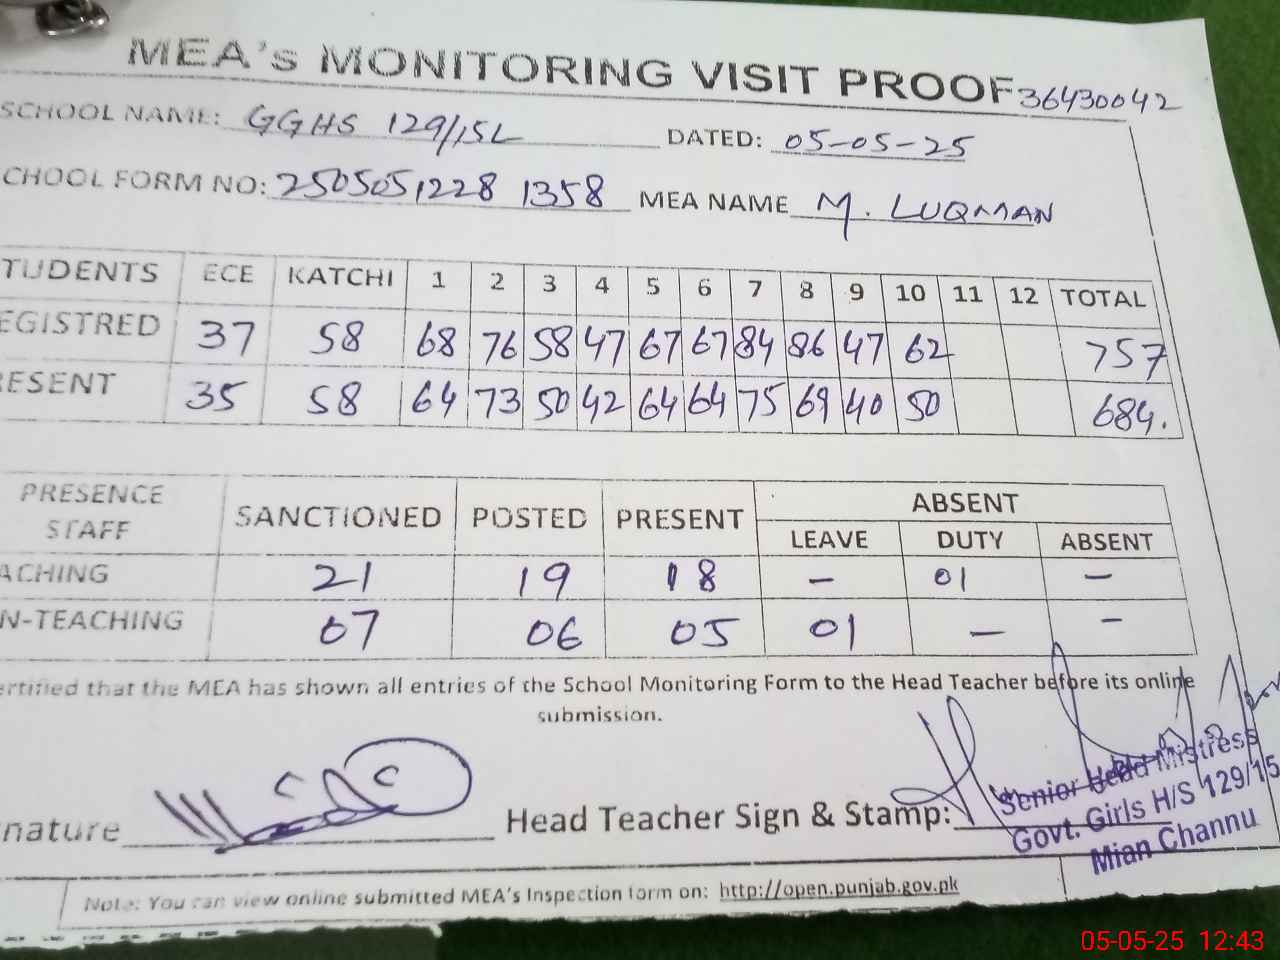 MEA's MONITORING VISIT PROOF 36430042
SCHOOL NAME: GGHS 129/15L DATED: 05-05-25
CHOOL FORM NO: 2505051228 1358 MEA NAME M. LUQMAN
TUDENTS ECE KATCHI 1 2 3 4 5 6 7 8 9 10 11 12 TOTAL
EGISTRED 37 58 68 76 58 47 67 67 84 86 47 62 757
RESENT 35 58 64 73 50 42 64 64 75 69 40 50 684.
PRESENCE STAFF SANCTIONED POSTED PRESENT ABSENT
LEAVE DUTY ABSENT
ACHING 21 19 18 - 01 -
N-TEACHING 07 06 05 01 - -
ertified that the MEA has shown all entries of the School Monitoring Form to the Head Teacher before its online
submission.
nature Head Teacher Sign & Stamp:
Senior Head Mistress
Govt. Girls H/S 129/15
Mian Channu
Note: You can view online submitted MEA's Inspection form on: http://open.punjab.gov.pk
05-05-25 12:43